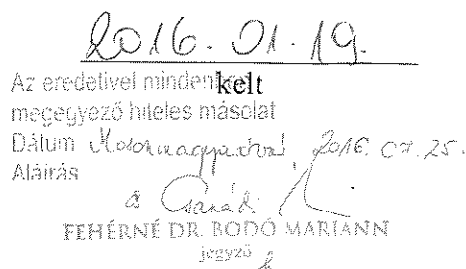 2016. 01. 19.
Az eredetivel mindenben kelt
megegyező hiteles másolat
Dátum Mosonmagyaróvár, 2016. 07. 25.
Aláírás
FEHÉRNÉ DR. BODÓ MARIANN
jegyző